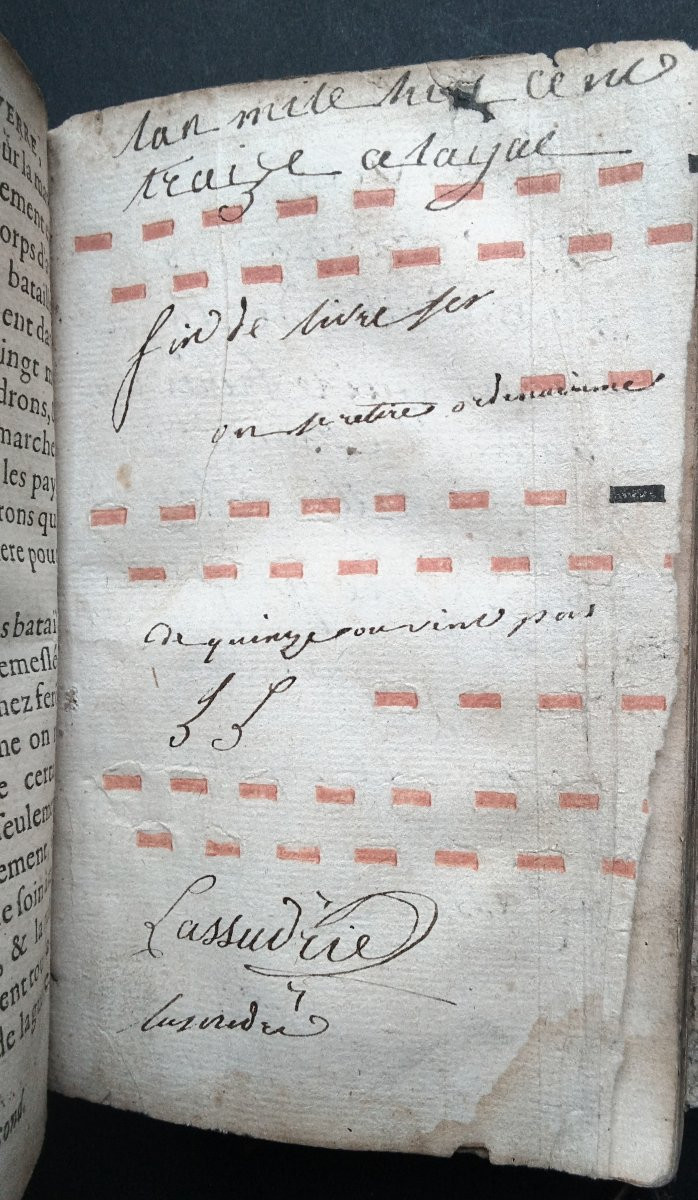 VERRE,
ûr la ma
ement
orps d
batail
ent da
ingt m
drons,
marche
les pay
rons qu
ere pour
s batail
emeslé
nez fer
me on
e cert
seulem
ement
e soin
& la
ent to
de la gu
cond.
lan mile huit cent
traize a layac
fin de livre ser
on se retire ordinairime
de quinze ou vint pas
Lassudrie